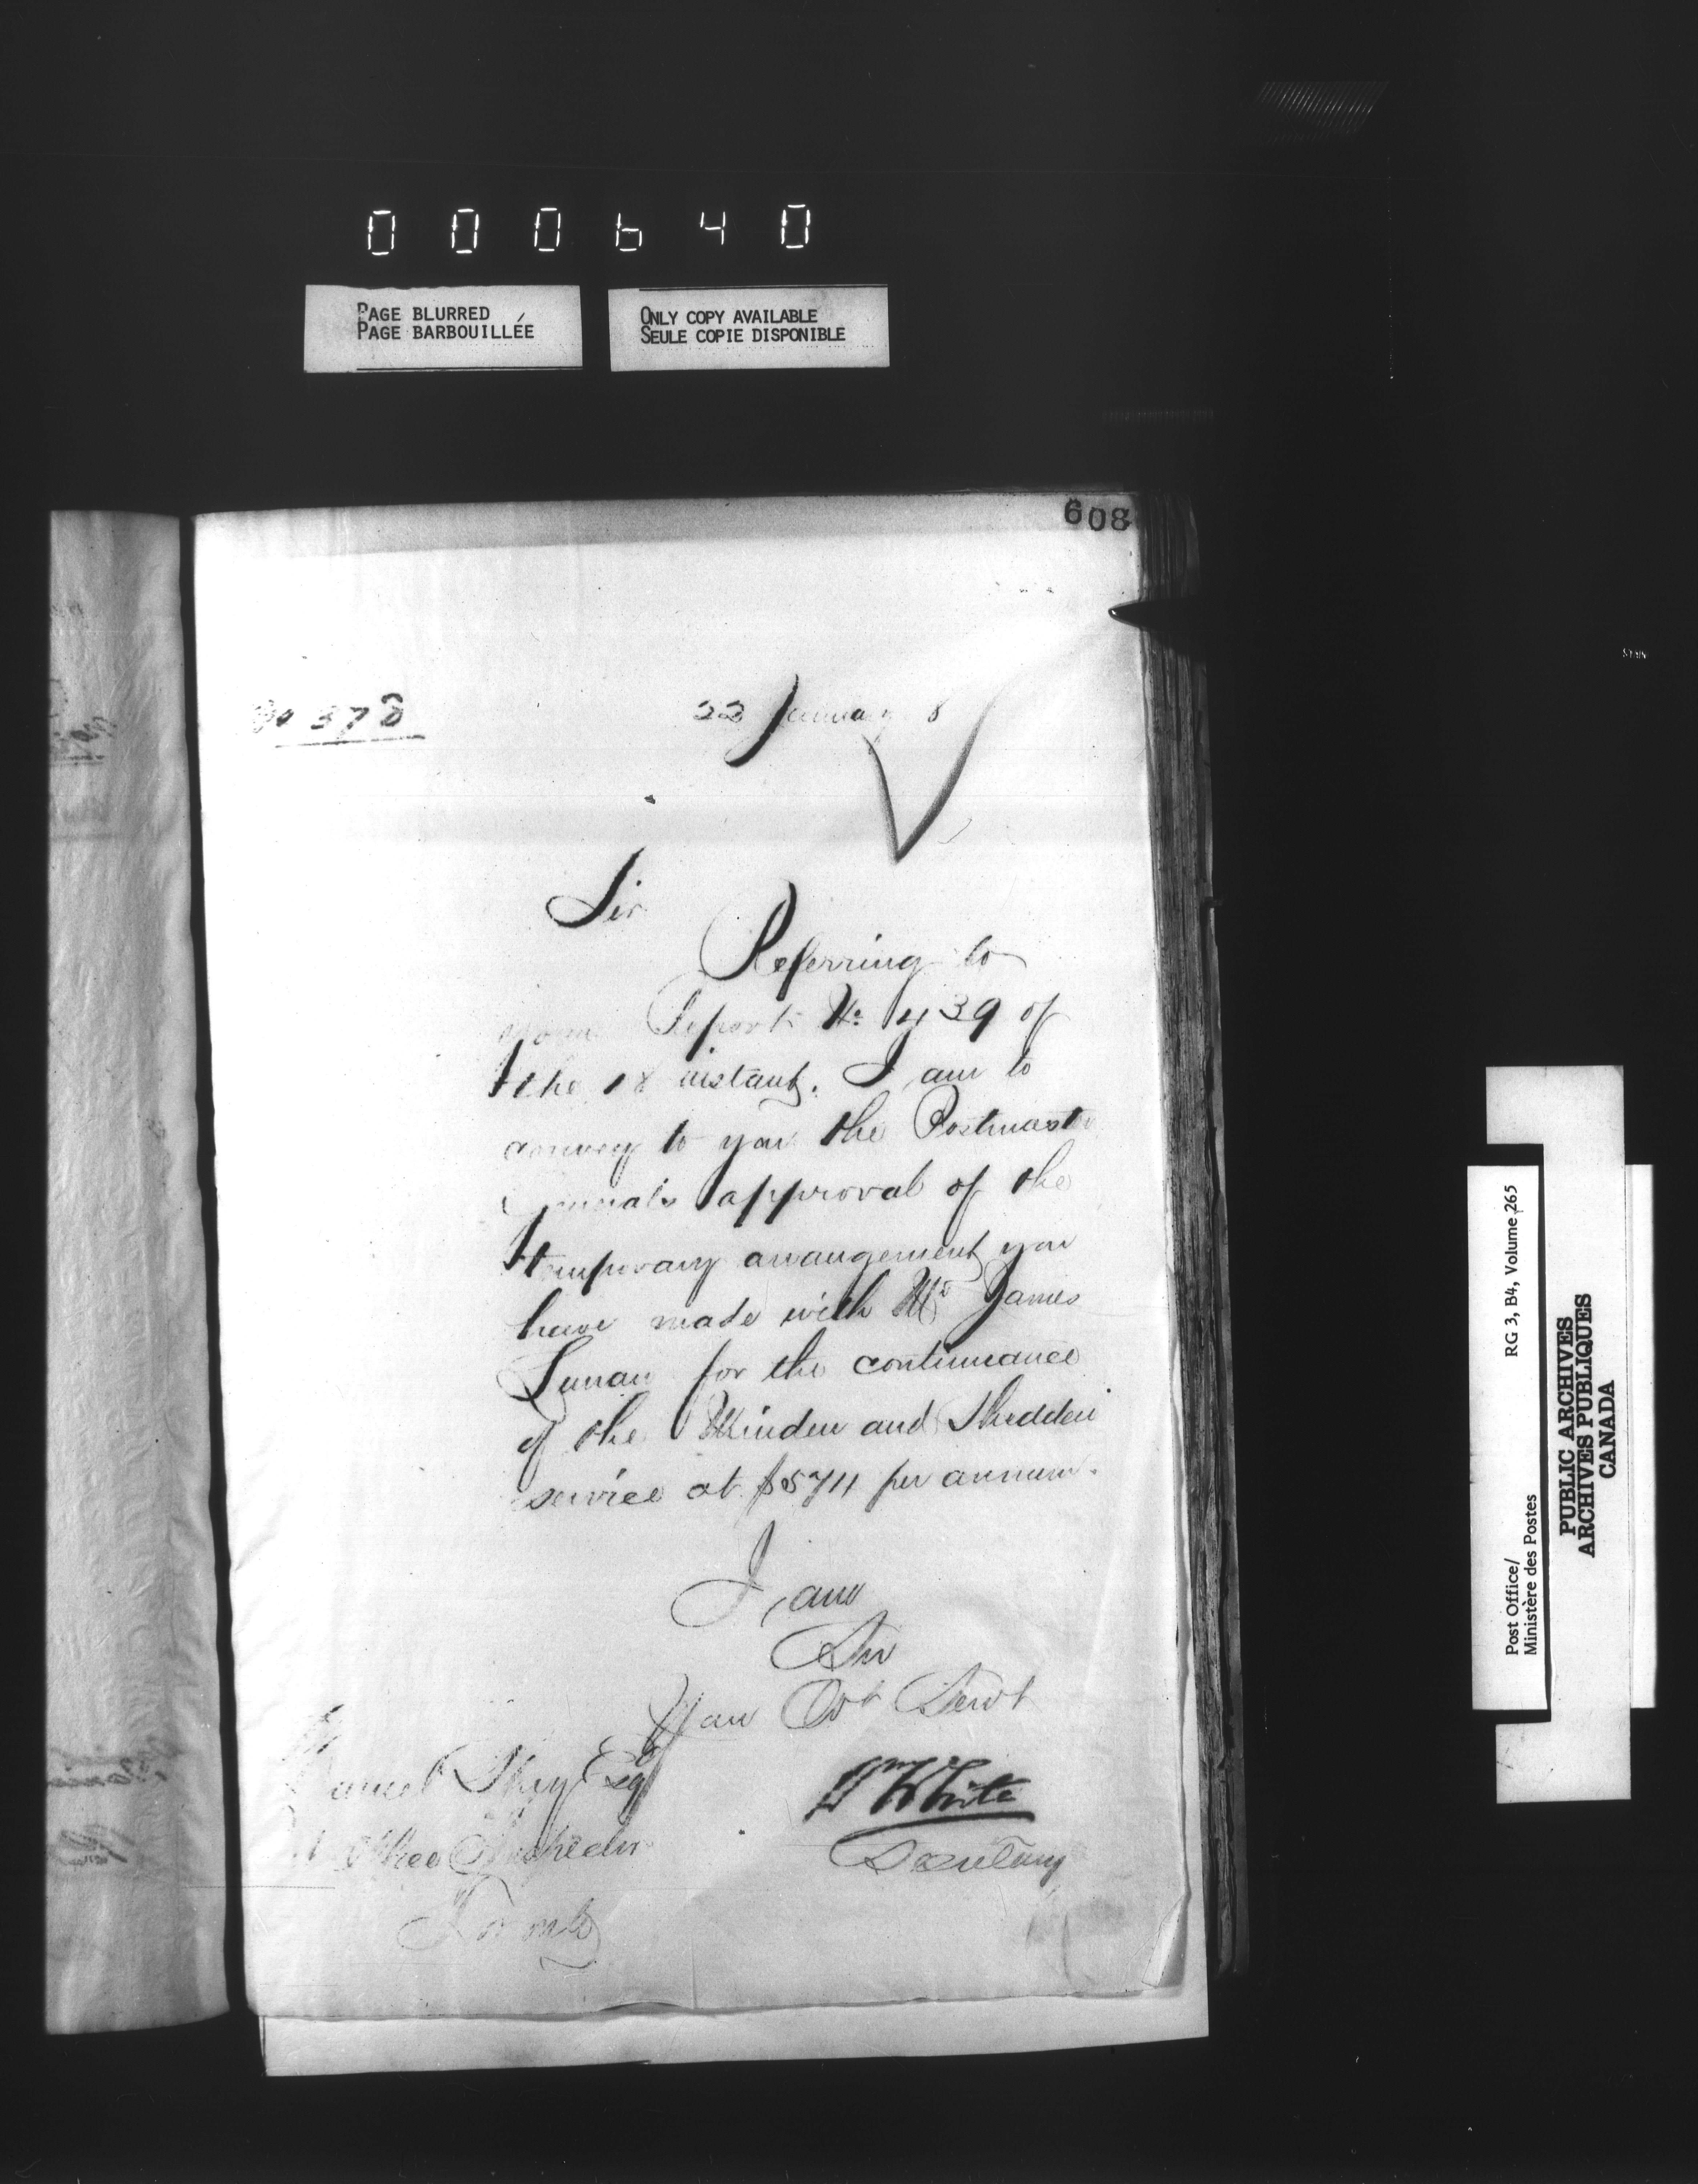 000640
PAGE BLURRED
PAGE BARBOUILLÉE
ONLY COPY AVAILABLE
SEULE COPIE DISPONIBLE
608
No 378
22 January 8
Sir
Referring to
your Report No 439 of
the 18 instant. I am to
convey to you the Postmaster
Generals approval of the
temporary arrangement you
have made with Mr James
for the continuance
of the Minden and Shedden
service at $574 per annum.
I am
Sir
Your Obt Servt
Wm White
Secretary
Esq
P. Office Inspector
Toronto
Post Office/
Ministère des Postes
RG 3, B4, Volume 265
PUBLIC ARCHIVES
ARCHIVES PUBLIQUES
CANADA